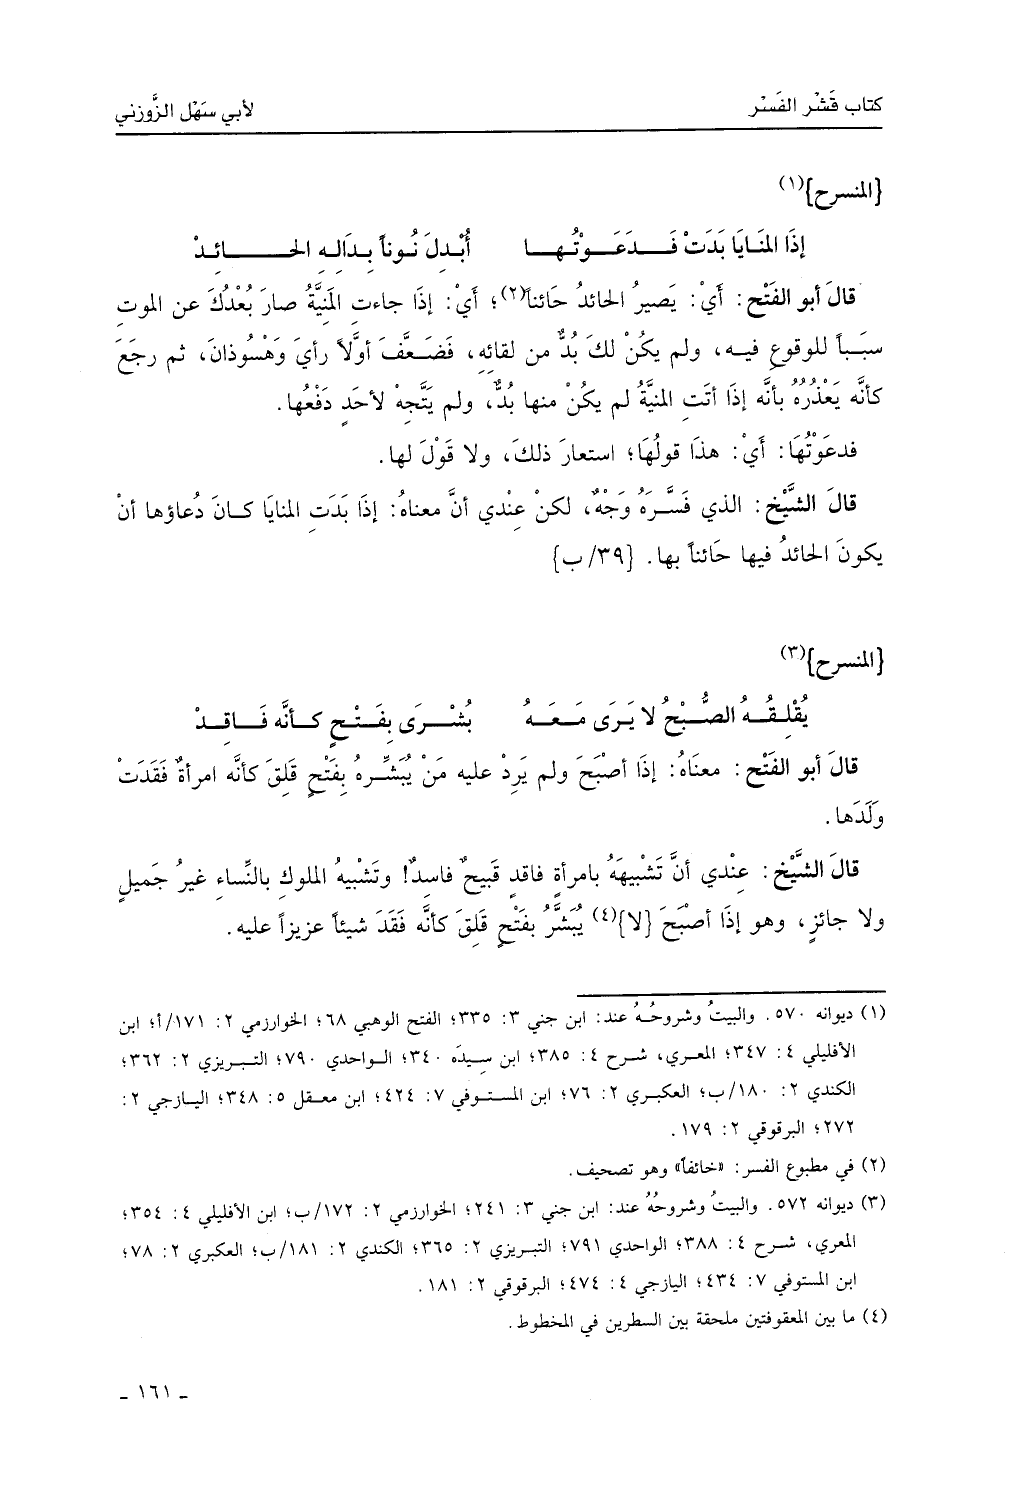 كتاب قَشْر الفَسْر لأبي سَهْل الزَّوْزني
{المنسرح}(١)
إذَا المنَايَا بَدَتْ فَـدَعَـوْتُـهـا أُبْـدلَ نُـوناً بـدَالـهِ الحَـائـدْ
قالَ أبو الفَتْح: أيْ: يَصيرُ الحائدُ حَائناً(٢)؛ أيْ: إذَا جاءتِ المَنيَّةُ صارَ بُعْدُكَ عن الموتِ
سبَـباً للوقوعِ فيـه، ولم يكُنْ لكَ بُدٌّ من لقائهِ، فَضَـعَّفَ أوَّلاً رأيَ وَهْسُوذانَ، ثم رجَعَ
كأنَّه يَعْذُرُهُ بأنَّه إذَا أتَتِ المنيَّةُ لم يكُنْ منها بُدٌّ، ولم يَتَّجِهْ لأحَدٍ دَفْعُها.
فدعَوْتُهَا: أيْ: هذَا قولُهَا؛ استعارَ ذلكَ، ولا قَوْلَ لها.
قالَ الشَّيْخ: الذي فَسَّـرَهُ وَجْهٌ، لكنْ عِنْدي أنَّ معناهُ: إذَا بَدَتِ المنايَا كـانَ دُعاؤها أنْ
يكونَ الحائدُ فيها حَائناً بها. {٣٩/ب}
{المنسرح}(٣)
يُقْلـقُـهُ الصُّـبْحُ لا يَـرَى مَـعَـهُ بُشْـرَى بفَـتْـحٍ كـأنَّه فَـاقـدْ
قالَ أبو الفَتْح: معنَاهُ: إذَا أصْبَحَ ولم يَرِدْ عليه مَنْ يُبَشِّـرهُ بفَتْحٍ قَلِقَ كأنَّه امرأةٌ فَقَدَتْ
ولَدَها.
قالَ الشَّيْخ: عِنْدي أنَّ تَشْبيهَهُ بامرأةٍ فاقدٍ قَبيحٌ فاسدٌ! وتَشْبيهُ الملوكِ بالنِّساءِ غيرُ جَميلٍ
ولا جائزٍ، وهو إذَا أصْبَحَ {لا}(٤) يُبَشَّرُ بفَتْحٍ قَلِقَ كأنَّه فَقَدَ شيئاً عزيزاً عليه.
(١) ديوانه ٥٧٠. والبيتُ وشروحُـهُ عند: ابن جني ٣: ٣٣٥؛ الفتح الوهبي ٦٨؛ الخوارزمي ٢: ١٧١/أ؛ ابن
الأفليلي ٤: ٣٤٧؛ المعـري، شـرح ٤: ٣٨٥؛ ابن سيـدَه ٣٤٠؛ الـواحدي ٧٩٠؛ التبـريزي ٢: ٣٦٢؛
الكندي ٢: ١٨٠/ب؛ العكبـري ٢: ٧٦؛ ابن المستـوفي ٧: ٤٢٤؛ ابن معـقل ٥: ٣٤٨؛ اليـازجي ٢:
٢٧٢؛ البرقوقي ٢: ١٧٩.
(٢) في مطبوع الفسر: «خائفاً» وهو تصحيف.
(٣) ديوانه ٥٧٢. والبيتُ وشروحُهُ عند: ابن جني ٣: ٢٤١؛ الخوارزمي ٢: ١٧٢/ب؛ ابن الأفليلي ٤: ٣٥٤؛
المعري، شـرح ٤: ٣٨٨؛ الواحدي ٧٩١؛ التبـريزي ٢: ٣٦٥؛ الكندي ٢: ١٨١/ب؛ العكبري ٢: ٧٨؛
ابن المستوفي ٧: ٤٣٤؛ اليازجي ٤: ٤٧٤؛ البرقوقي ٢: ١٨١.
(٤) ما بين المعقوفتين ملحقة بين السطرين في المخطوط.
ـ ١٦١ ـ